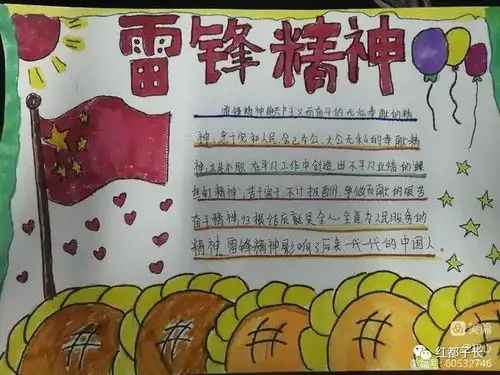 雷锋精神
雷锋精神是共产主义而奋斗的无私奉献的精
神,忠于党和人民、舍己为公、大公无私的奉献精
神,立足本职、在平凡工作中创造出不平凡业绩的螺
丝钉精神,苦干实干、不计报酬、争做贡献的艰苦
奋斗精神,归根结底就是全心全意为人民服务的
精神。雷锋精神影响了后来一代一代的中国人。
美篇
红都学长
60532746